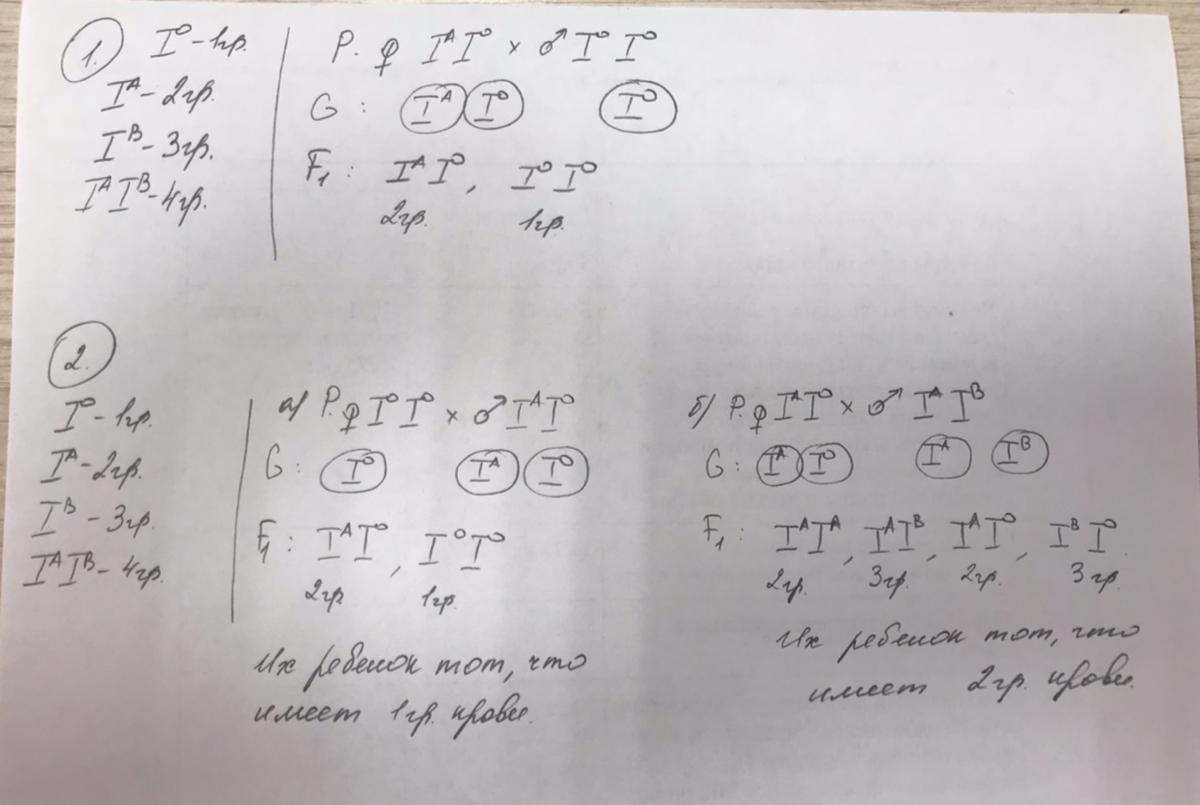 1.
I⁰ - 1гр.
Iᴬ - 2гр.
Iᴮ - 3гр.
IᴬIᴮ - 4гр.
P. ♀ IᴬI⁰ × ♂ I⁰I⁰
G : Iᴬ I⁰ I⁰
F₁ : IᴬI⁰, I⁰I⁰
2гр. 1гр.
2.
I⁰ - 1гр.
Iᴬ - 2гр.
Iᴮ - 3гр.
IᴬIᴮ - 4гр.
а) P. ♀ I⁰I⁰ × ♂ IᴬI⁰
G : I⁰ Iᴬ I⁰
F₁ : IᴬI⁰, I⁰I⁰
2гр 1гр.
Их ребенок тот, что
имеет 1гр. крови.
б) P. ♀ IᴬI⁰ × ♂ IᴬIᴮ
G : Iᴬ I⁰ Iᴬ Iᴮ
F₁ : IᴬIᴬ, IᴬIᴮ, IᴬI⁰, IᴮI⁰.
2гр. 3гр. 2гр. 3гр.
Их ребенок тот, что
имеет 2гр. крови.